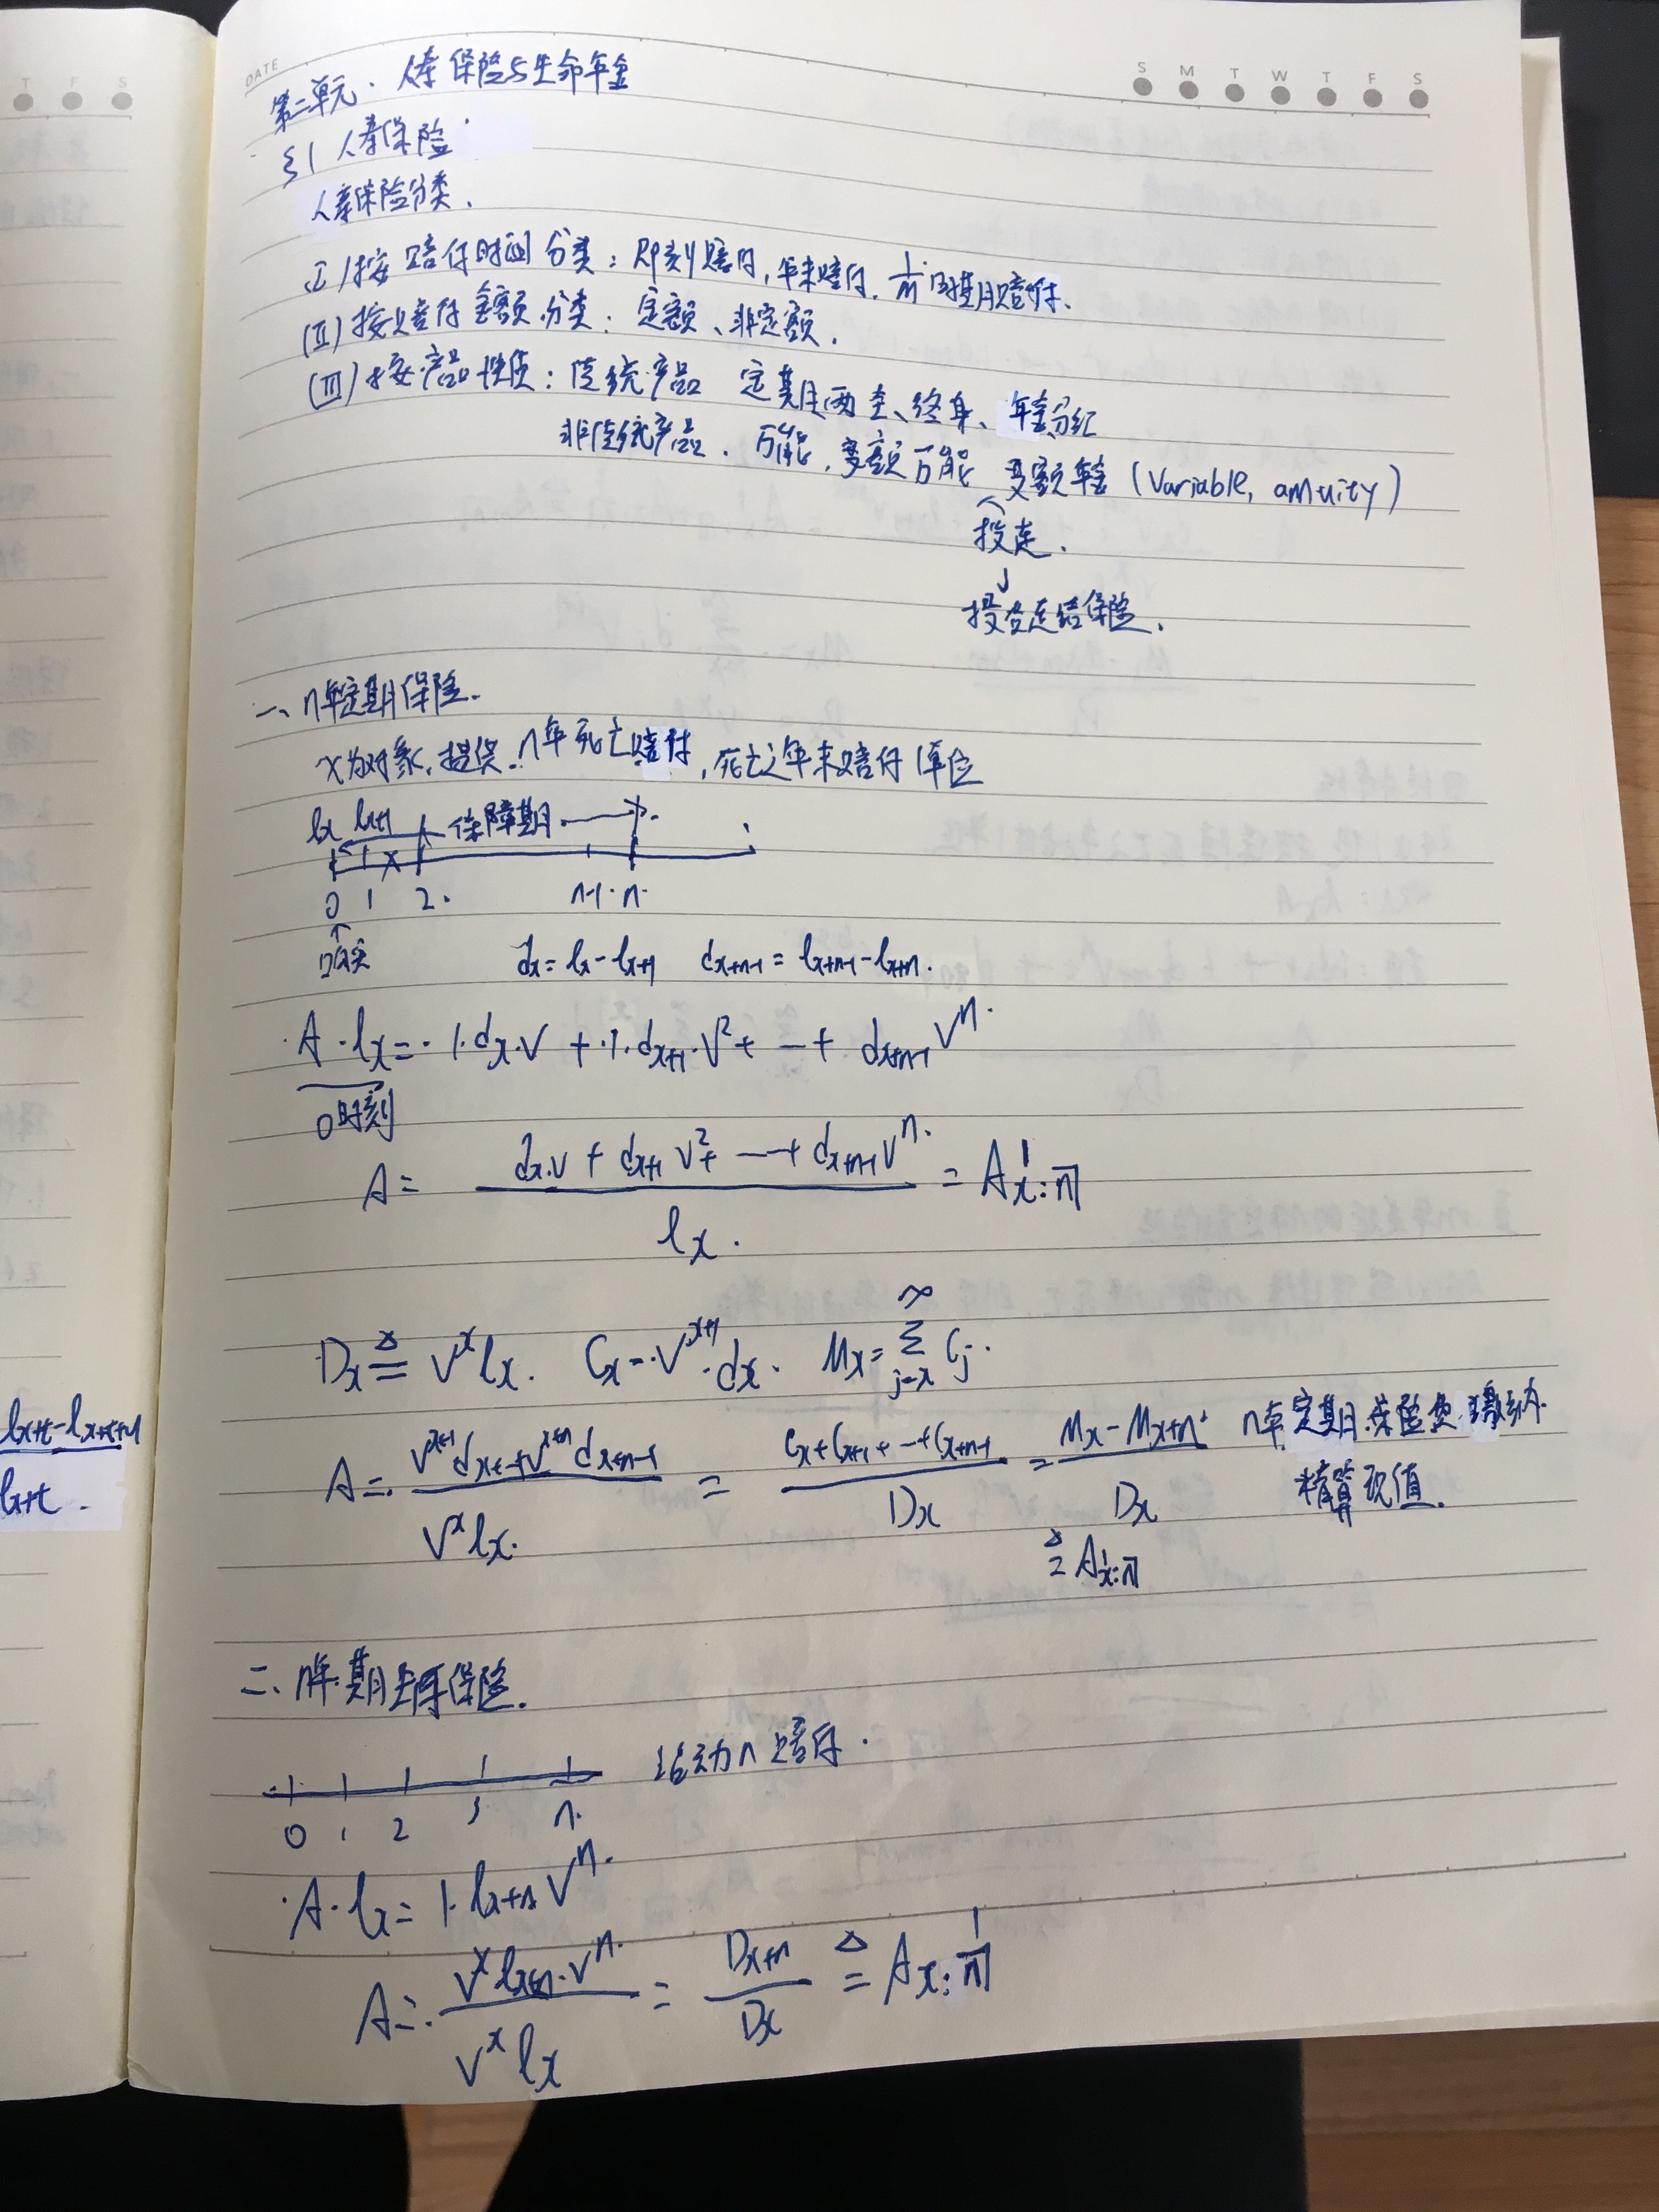 DATE
S M T W T F S
T F S
第二单元、人寿保险与生命年金
§1 人寿保险
人寿保险分类.
(I)按赔付时间分类：即刻赔付,年末赔付. 1/m 周期赔付.
(II)按赔付金额分类：定额、非定额.
(III)按产品性质：传统产品 定期两全、终身、年金分红
非传统产品. 万能,变额万能 变额年金 (Variable, annuity)
投连.
↓
投资连结保险.
一、n年定期保险.
x为对象,提供.n年死亡赔付,死亡之年末赔付1单位
lx lx+1 ← 保障期 →
0 1 2. n-1. n.
↑
购买 dx = lx - lx+1 dx+n-1 = lx+n-1 - lx+n.
A·lx = 1·dx·V + 1·dx+1·V² + — + dx+n-1 Vⁿ.
0时刻
A = (dx·V + dx+1 V² + — + dx+n-1 Vⁿ) / lx = A¹x:n̅|
Dx ≜ Vˣlx. Cx = V^(x+1)·dx. Mx = Σ(j=x→∞) Cj.
A = (V^(x+1)dx + — + V^(x+n)dx+n-1) / Vˣlx = (Cx + Cx+1 + — + Cx+n-1) / Dx = (Mx - Mx+n) / Dx n年定期保险费缴纳.
精算现值.
≜ A¹x:n̅|
lx+t - lx+t+1
lx+t.
二、n年期生存保险.
活动n赔付.
0 1 2 3 n.
A·lx = 1·lx+n Vⁿ.
A = Vˣlx+n·Vⁿ / Vˣlx = Dx+n / Dx ≜ Ax:n̅|¹